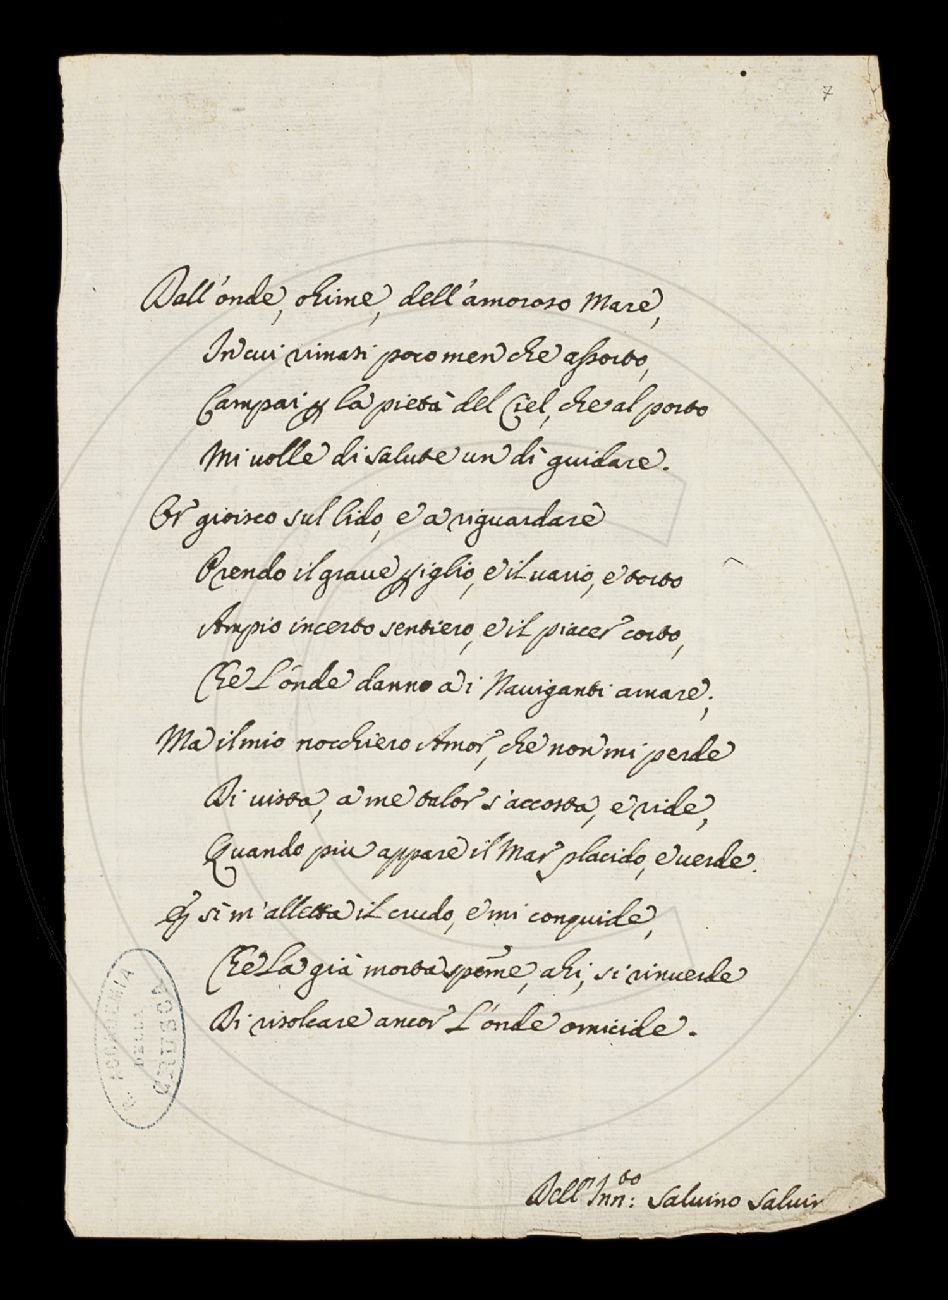 7
Dall'onde, ohime, dell'amoroso Mare,
In cui rimasi poco men che assorto,
Campai p la pietà del Ciel, che al porto
Mi volle di salute un dì guidare.
Or gioisco sul lido, e a riguardare
Prendo il grave piglio, e il vario, e torto
Ampio incerto sentiero, e il piacer corto,
Che l'onde danno a i Naviganti amare;
Ma il mio nocchiero Amor, che non mi perde
Di vista, a me talor s'accosta, e ride,
Quando più appare il Mar placido, e verde.
E sì m'alletta il crudo, e mi conquide,
Che la già morta speme, ahi, si rinverde
Di risolcare ancor l'onde omicide.
R. ACCADEMIA
DELLA
CRUSCA
Dell' Inn:to Salvino Salvin